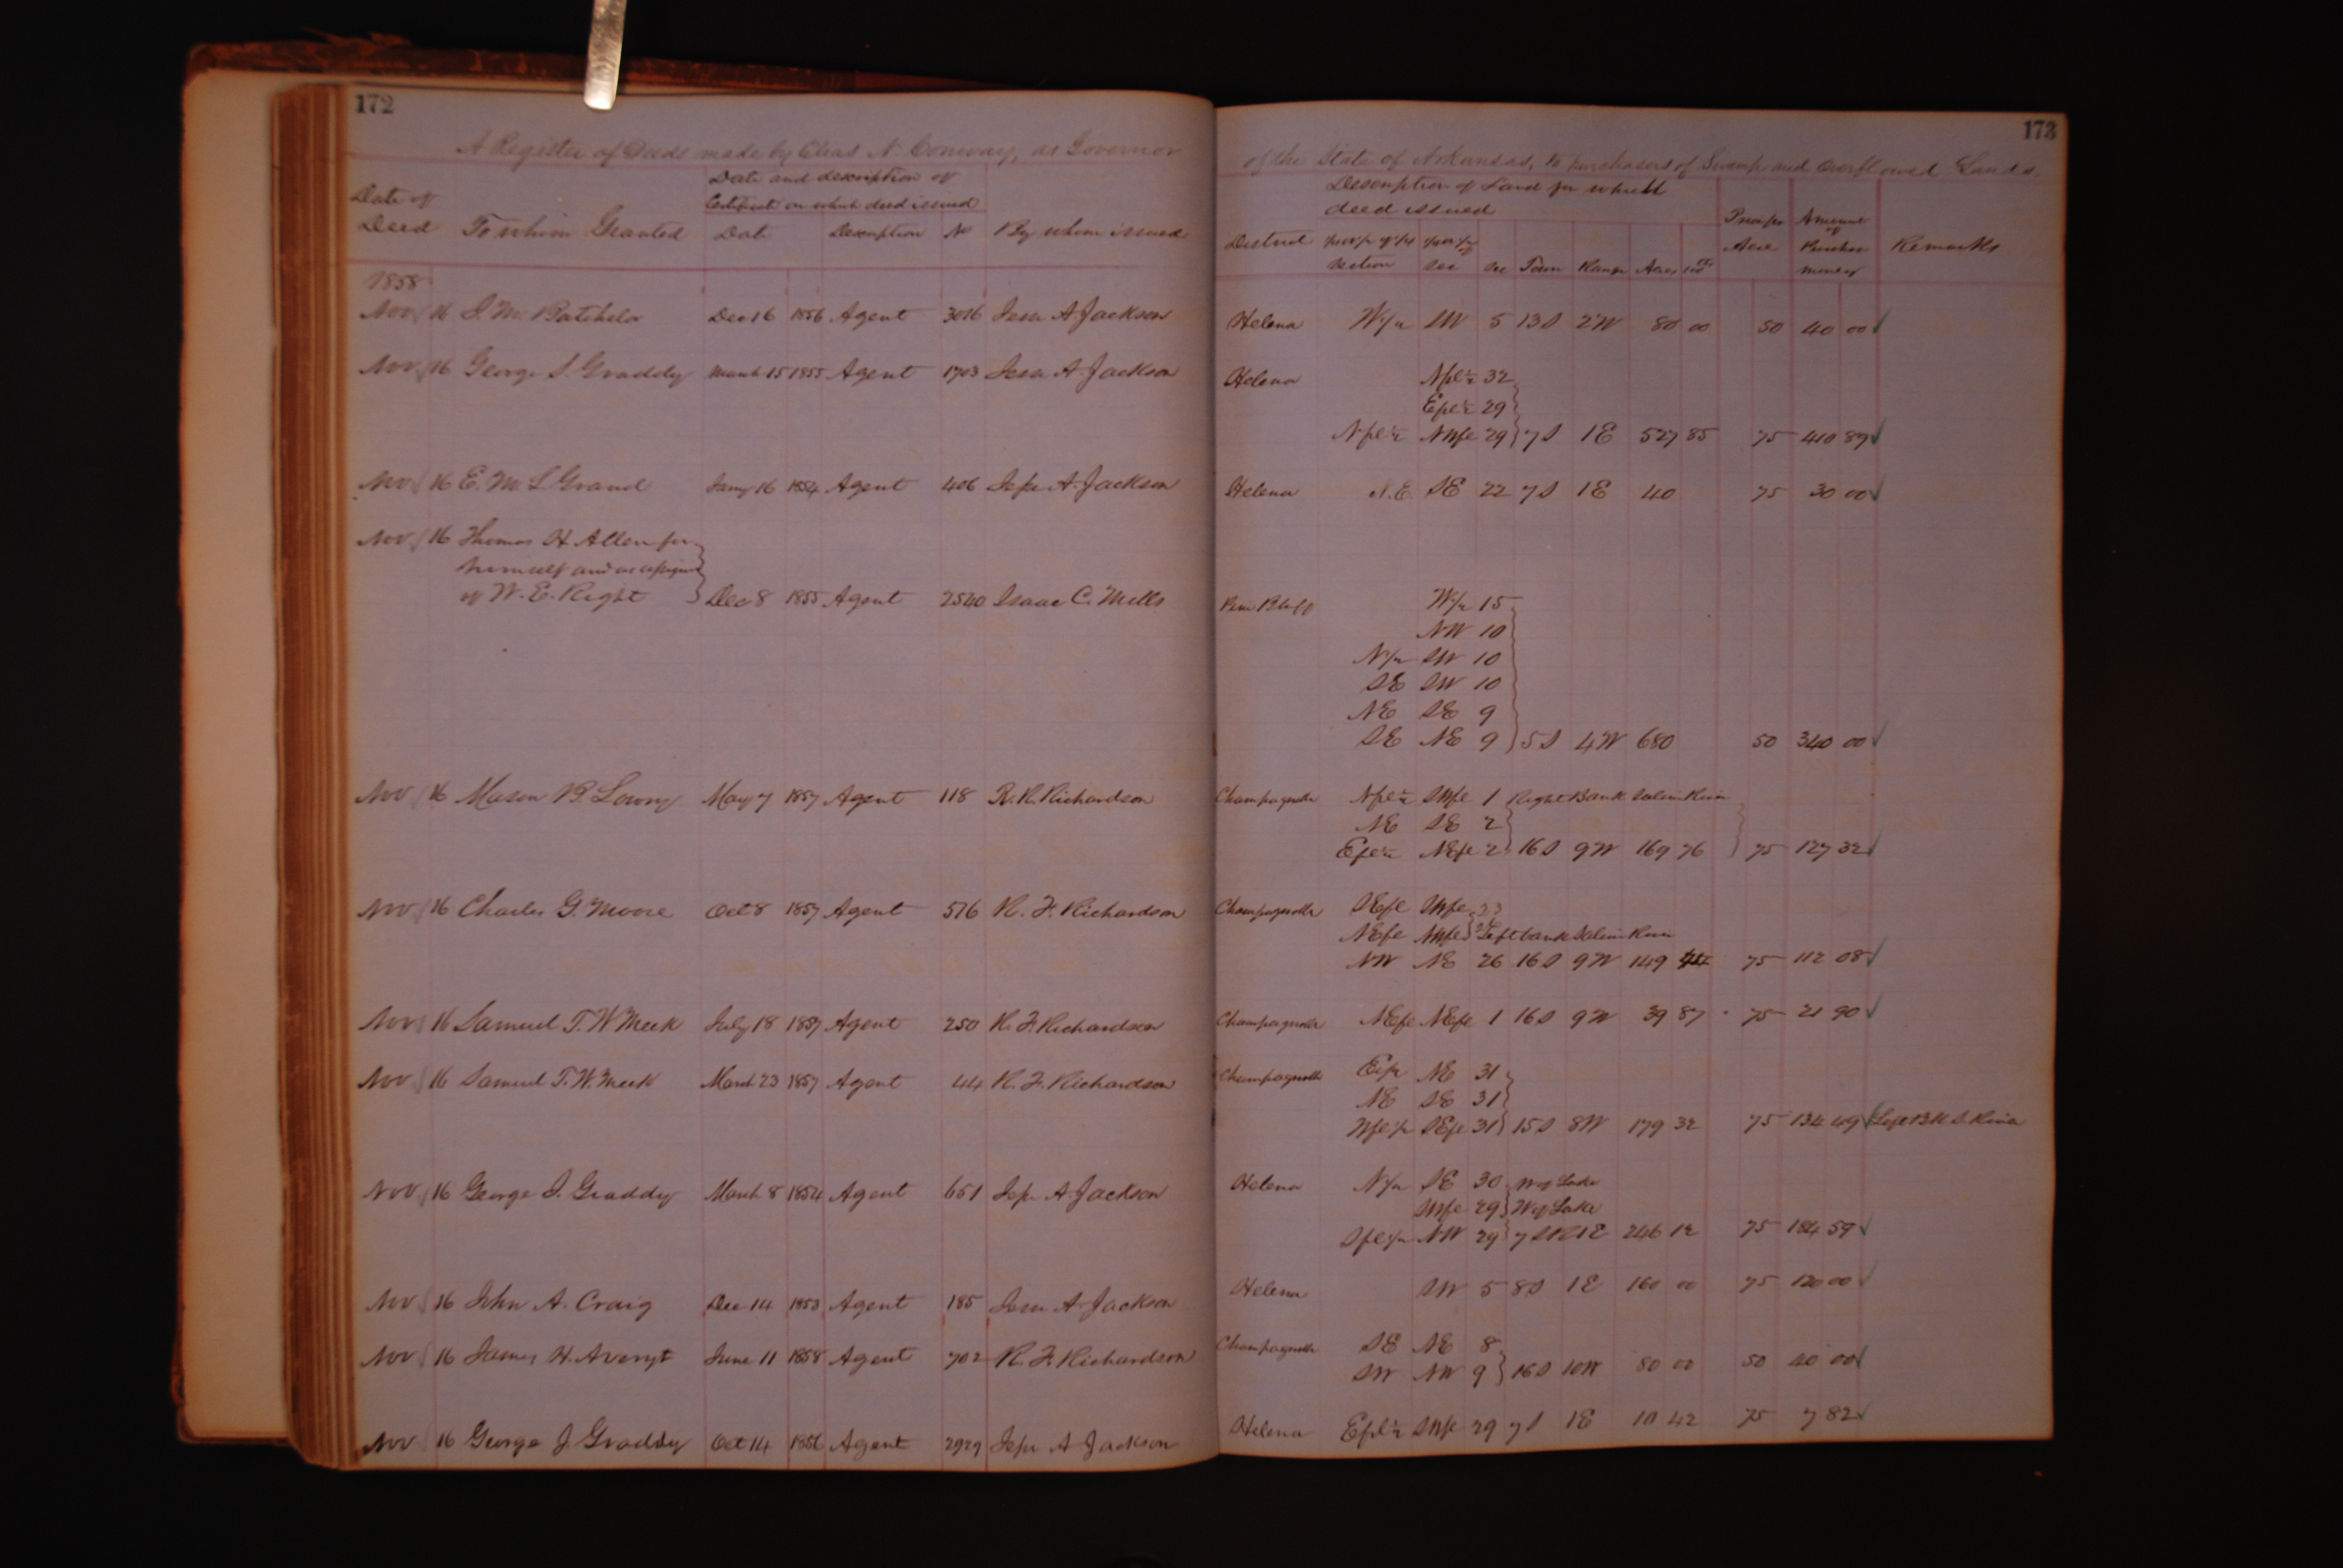 172
173
A Register of Deeds made by Elias N. Conway, as Governor of the State of Arkansas, to purchasers of Swamp and overflowed Lands.
Date of Deed To whom Granted Date and description of Certificate on which deed issued Date Description No By whom issued District Description of Land for which deed issued Section Sec Sec Town Range Acres Price per Acre Amount of Purchase money Remarks
1858
Nov 16 Batchelor Dec 16 1856 Agent 3016 Jesse A Jackson Helena W 1/2 SW 5 13S 2W 80 00 50 40 00
Nov 16 George S. Graddy March 15 1855 Agent 1703 Jesse A Jackson Helena Nfl 1/2 32
Efl 1/2 29
Nfl 1/2 NWfl 29 7S 1E 527 85 75 410 89
Nov 16 E. M. L Grand Jany 16 1854 Agent 406 Jesse A Jackson Helena N.E SE 22 7S 1E 40 75 30 00
Nov 16 Thomas H Allen for
himself and as assignee
of W. E. Right Dec 8 1855 Agent 2540 Isaac C. Mills Pine Bluff W 1/2 15
NW 10
N 1/2 SW 10
SE SW 10
NE SE 9
SE NE 9 5S 4W 680 50 340 00
Nov 16 Mason B. Lowry May 7 1857 Agent 118 R. F. Richardson Champagnolle Nfl 1/2 SWfl 1 Right Bank Saline River
NE SE 2
Efl 1/2 NEfl 2 16S 9W 169 76 75 127 32
Nov 16 Charles G. Moore Oct 8 1857 Agent 576 R. F. Richardson Champagnolle SEfl SWfl 23
NEfl NWfl Left bank Saline River
NW NE 26 16S 9W 149 75 112 08
Nov 16 Samuel T. W Meek July 18 1857 Agent 250 R. F. Richardson Champagnolle NEfl NEfl 1 16S 9W 39 87 75 21 90
Nov 16 Samuel T. W. Meek March 23 1857 Agent 44 R. F. Richardson Champagnolle E 1/2 NE 31
NE SE 31
Wfl 1/2 SEfl 31 15S 8W 179 32 75 134 49 Left BK S. River
Nov 16 George S. Graddy March 8 1854 Agent 651 Jesse A Jackson Helena N 1/2 SE 30 W of Lake
SWfl 29 W of Lake
Sfl 1/2 NW 29 7S R1E 246 12 75 184 59
Nov 16 John A. Craig Dec 14 1853 Agent 185 Jesse A Jackson Helena SW 5 8S 1E 160 00 75 120 00
Nov 16 James H. Averyt June 11 1858 Agent 702 R. F. Richardson Champagnolle SE NE 8
SW NW 9 16S 10W 80 00 50 40 00
Nov 16 George J. Graddy Oct 14 1856 Agent 2929 Jesse A Jackson Helena Efl 1/2 SWfl 29 7S 1E 10 42 75 7 82